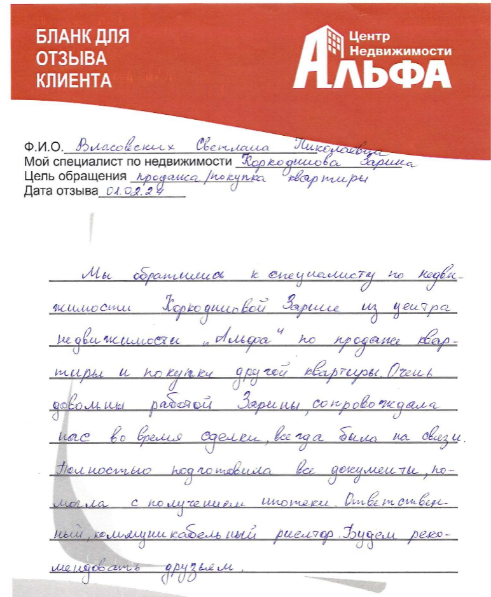 БЛАНК ДЛЯ
ОТЗЫВА
КЛИЕНТА
Центр
Недвижимости
АЛЬФА
Ф.И.О. Власовских Светлана Николаевна
Мой специалист по недвижимости Коркодинова Зарина
Цель обращения продажа/покупка квартиры
Дата отзыва 01.02.24
Мы обратились к специалисту по недви-
жимости Коркодиновой Зарине из центра
недвижимости „Альфа“ по продаже квар-
тиры и покупки другой квартиры. Очень
довольны работой Зарины, сопровождала
нас во время сделки, всегда была на связи.
Полностью подготовила все документы, по-
могла с получением ипотеки. Ответствен-
ный, коммуникабельный риелтор. Будем реко-
мендовать друзьям.